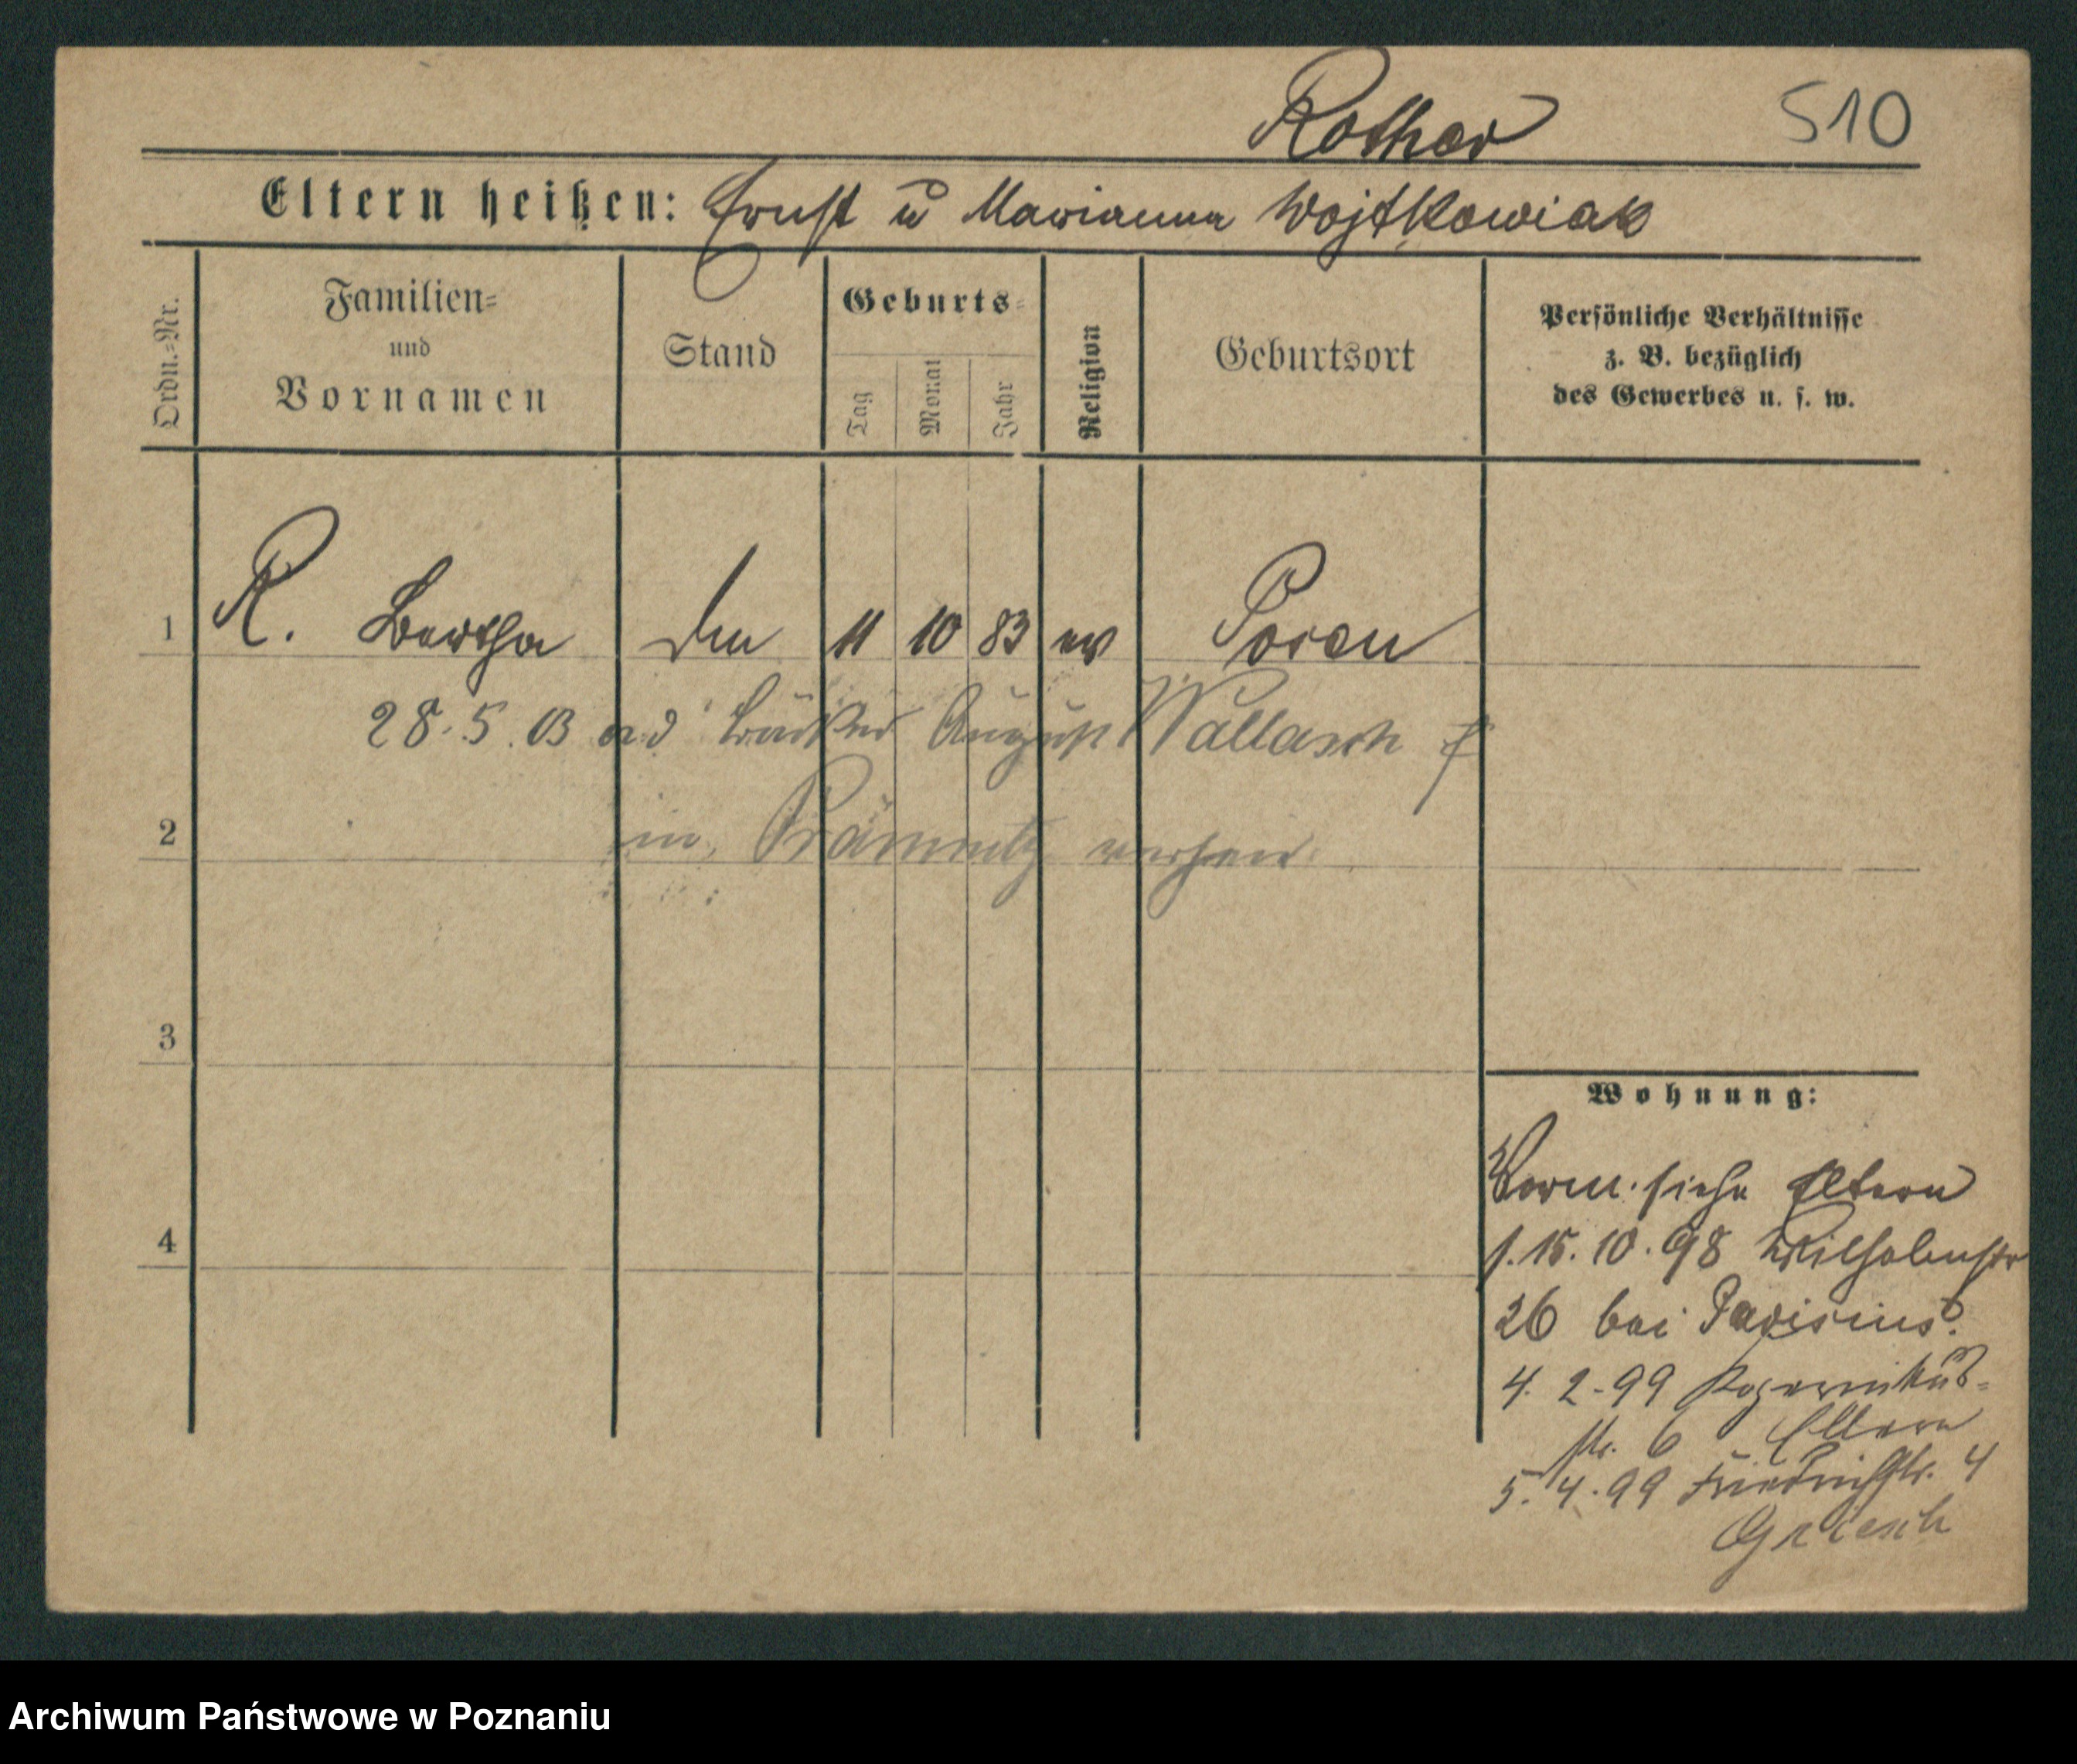 Rother 510
Eltern heißen: Ernst u Marianna Wojtkowiak
Ordn.-Nr.
Familien-
und
Vornamen
Stand
Geburts-
Tag
Monat
Jahr
Religion
Geburtsort
Persönliche Verhältnisse
z. B. bezüglich
des Gewerbes u. s. w.
1 R. Bertha 11 10 83 ev Posen
28.5.03 a.d Bäcker August Wallasch
2 in verheir
3
4
Wohnung:
siehe Eltern
15.10.98 Wilhelmstr
26 bei Parisius.
4.2.99 Kopernikus-
str. 6 Eltern
5.4.99 Friedrichstr. 4
Griesch
Archiwum Państwowe w Poznaniu